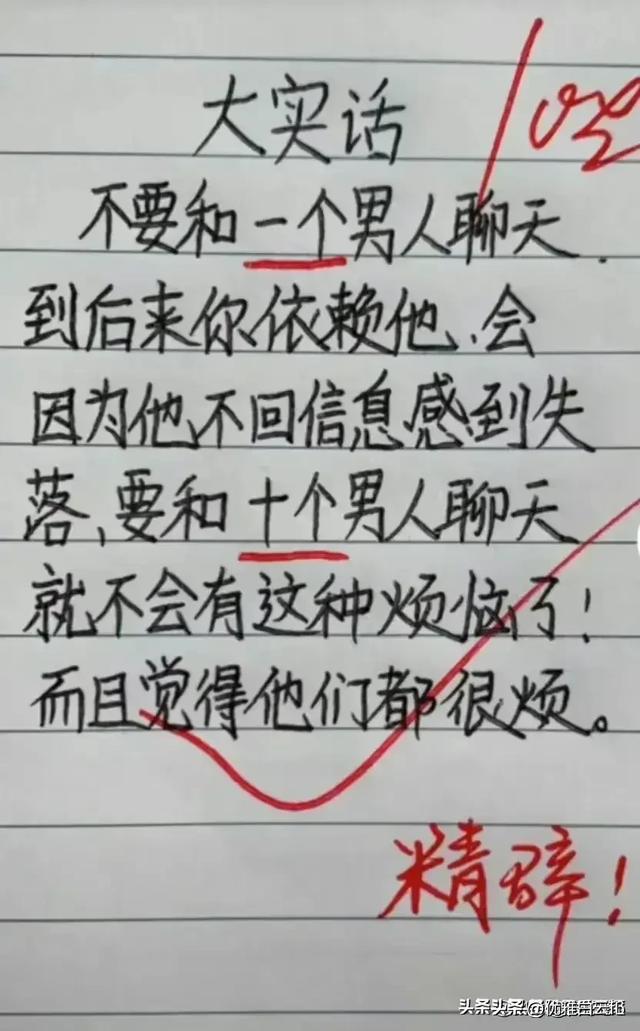 大实话
不要和一个男人聊天
到后来你依赖他、会
因为他不回信息感到失
落、要和十个男人聊天
就不会有这种烦恼了!
而且觉得他们都很烦。
精辟!
头条